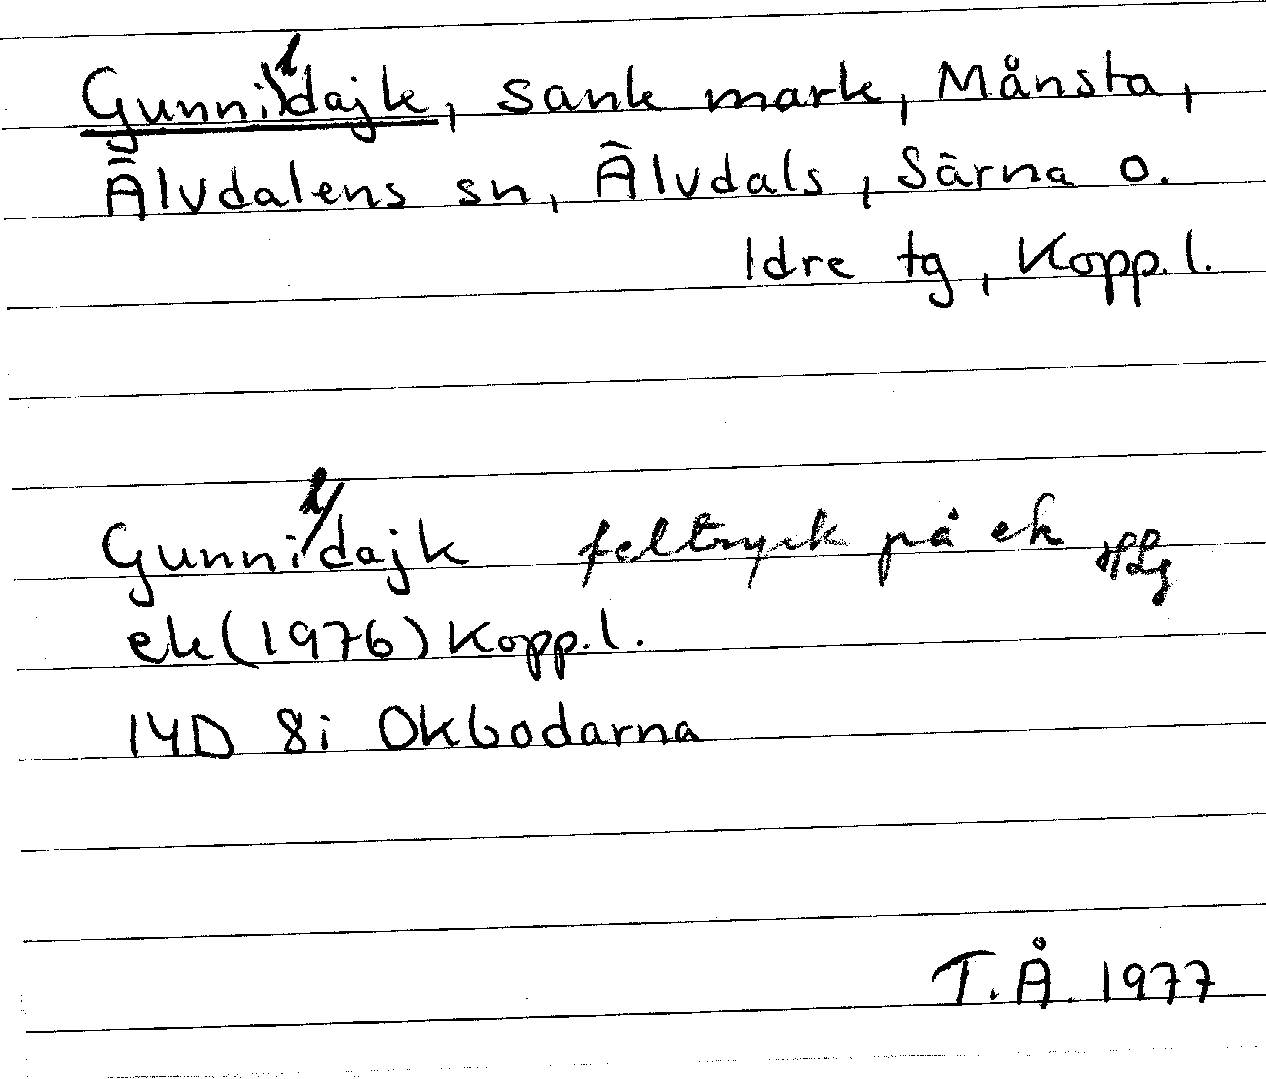 Gunnildajk, sank mark, Månsta,
Älvdalens sn, Älvdals, Särna o.
Idre tg, Kopp. l.
Gunnildajk feltryck på ek
ek (1976) Kopp. l.
14D 8i Okbodarna
T.Å. 1977